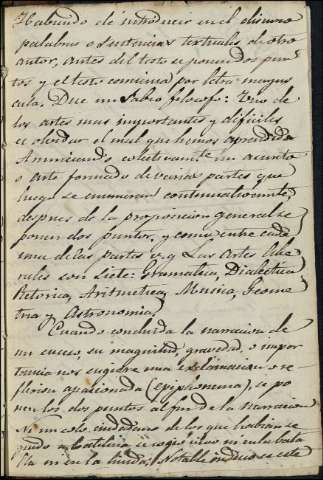 Habiendo de introducir en el discurso
palabras o sentencias textuales de otro
autor, antes del texto se ponen dos pun-
tos y el texto comienza por letra mayus-
cula. Dice un sabio filosofo: Una de
las artes mas importantes y dificiles
es olvidar el mal que hemos aprendido
Anunciando colectivamte un asunto
o Arte formado de varias partes que
luego se enumeran continuadamente,
despues de la proposicion general se
ponen dos puntos, y coma entre cada
una de las partes v.g. Las Artes libe-
rales son siete: Gramatica, Dialectica
Retorica, Aritmetica, Musica, Geome
tria y Astronomia.
Cuando concluida la narracion de
un suceso, su magnitud, gravedad, o impor
tancia nos sugiere una exclamacion o re-
flexion apasionada (epiphonema), se po
nen los dos puntos al fin de la narracion
Ni un solo ciudadano de los que habian se-
guido a Catilina se cogio vivo ni en la bata
lla ni en la huida: Notable en este